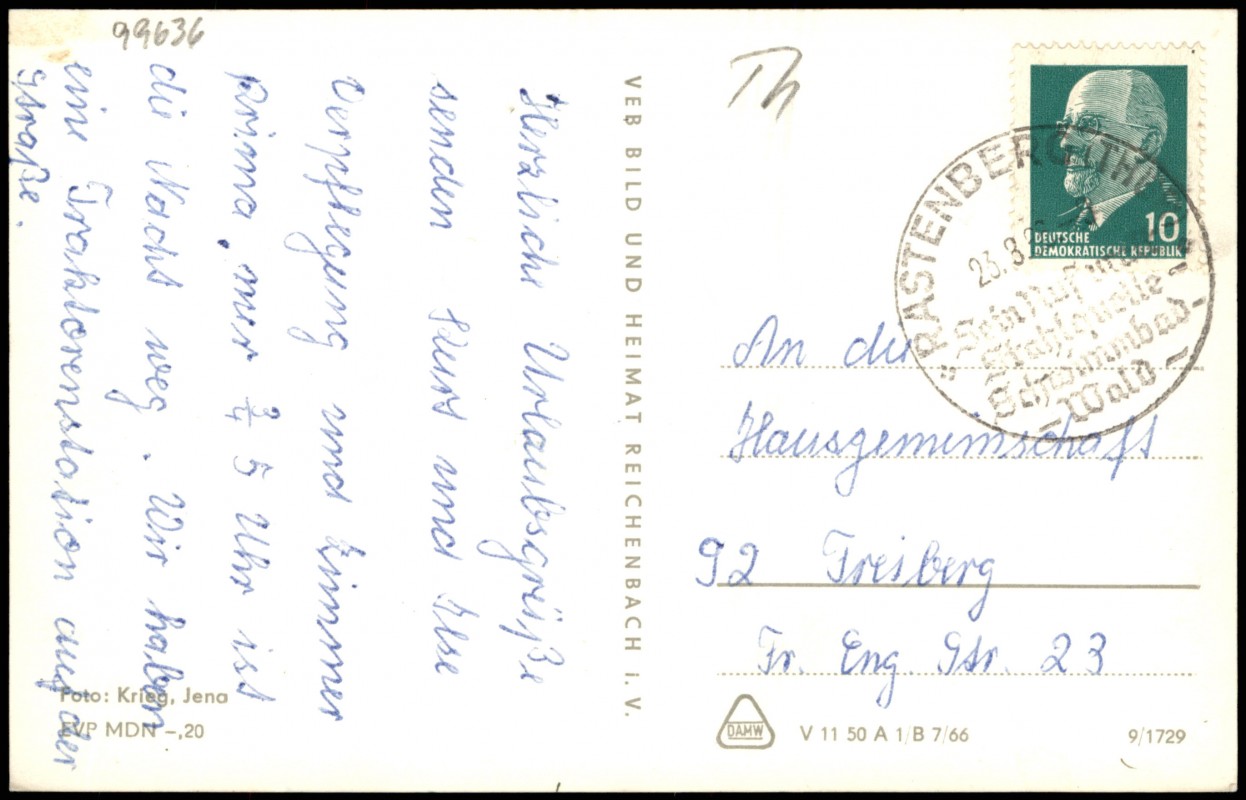 99636
Th
Herzliche Urlaubsgrüße
senden Kurt und Ilse
Verpflegung und Zimmer
prima, nur ¾ 5 Uhr ist
die Nacht weg. Wir haben
eine Traktorenstation auf der
Straße.
VEB BILD UND HEIMAT REICHENBACH I. V.
DEUTSCHE
DEMOKRATISCHE REPUBLIK
10
RASTENBERG (THÜR)
23.3
Stahlquelle
Schwimmbad
Wald
An die
Hausgemeinschaft
92 Freiberg
Fr. Eng. Str. 23
Foto: Krieg, Jena
EVP MDN –,20
DAMW
V 11 50 A 1/B 7/66
9/1729